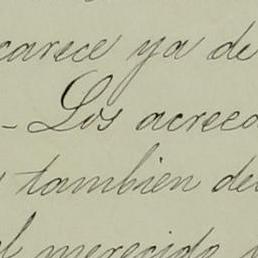 carece ya de
- Los acreed
tambien de
merecido